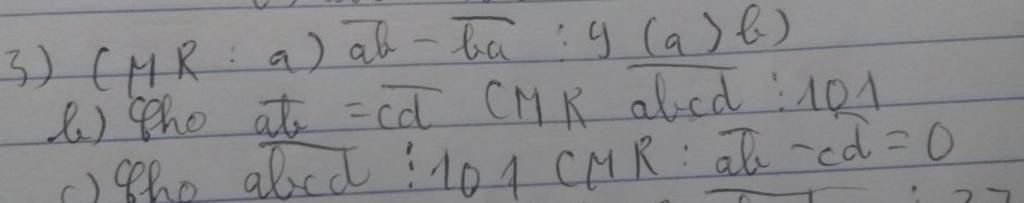 3) CMR : a) \overline{ab} - \overline{ba} ⋮ 9 (a > b)
b) Cho \overline{ab} = \overline{cd} CMR \overline{abcd} ⋮ 101
c) Cho \overline{abcd} ⋮ 101 CMR : \overline{ab} - \overline{cd} = 0